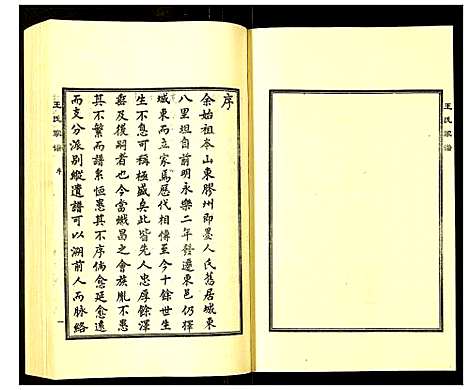 序
余始祖本山東膠州即墨人氏舊居城東
八里坦自前明永樂二年發遷東邑仍擇
城東而立家焉歷代相傳至今十餘世生
生不息可稱極盛矣此皆先人忠厚餘澤
善及後嗣者也今當熾昌之會族胤不患
其不繁而譜系恒患其不序倘愈延愈遠
而支分派別縱遺譜可以溯前人而脉絡
王氏家譜
序
一
王氏家譜